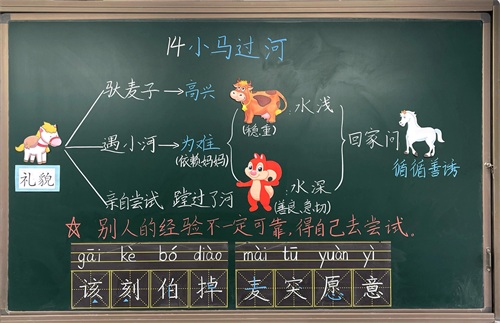 14 小马过河
驮麦子 → 高兴
水浅
(稳重)
遇小河 → 为难
(依赖妈妈)
回家问
循循善诱
礼貌
亲自尝试 蹚过了河
水深
(善良、急切)
☆ 别人的经验不一定可靠,得自己去尝试。
gāi kè bó diào mài tū yuàn yì
该刻伯掉 麦突愿意